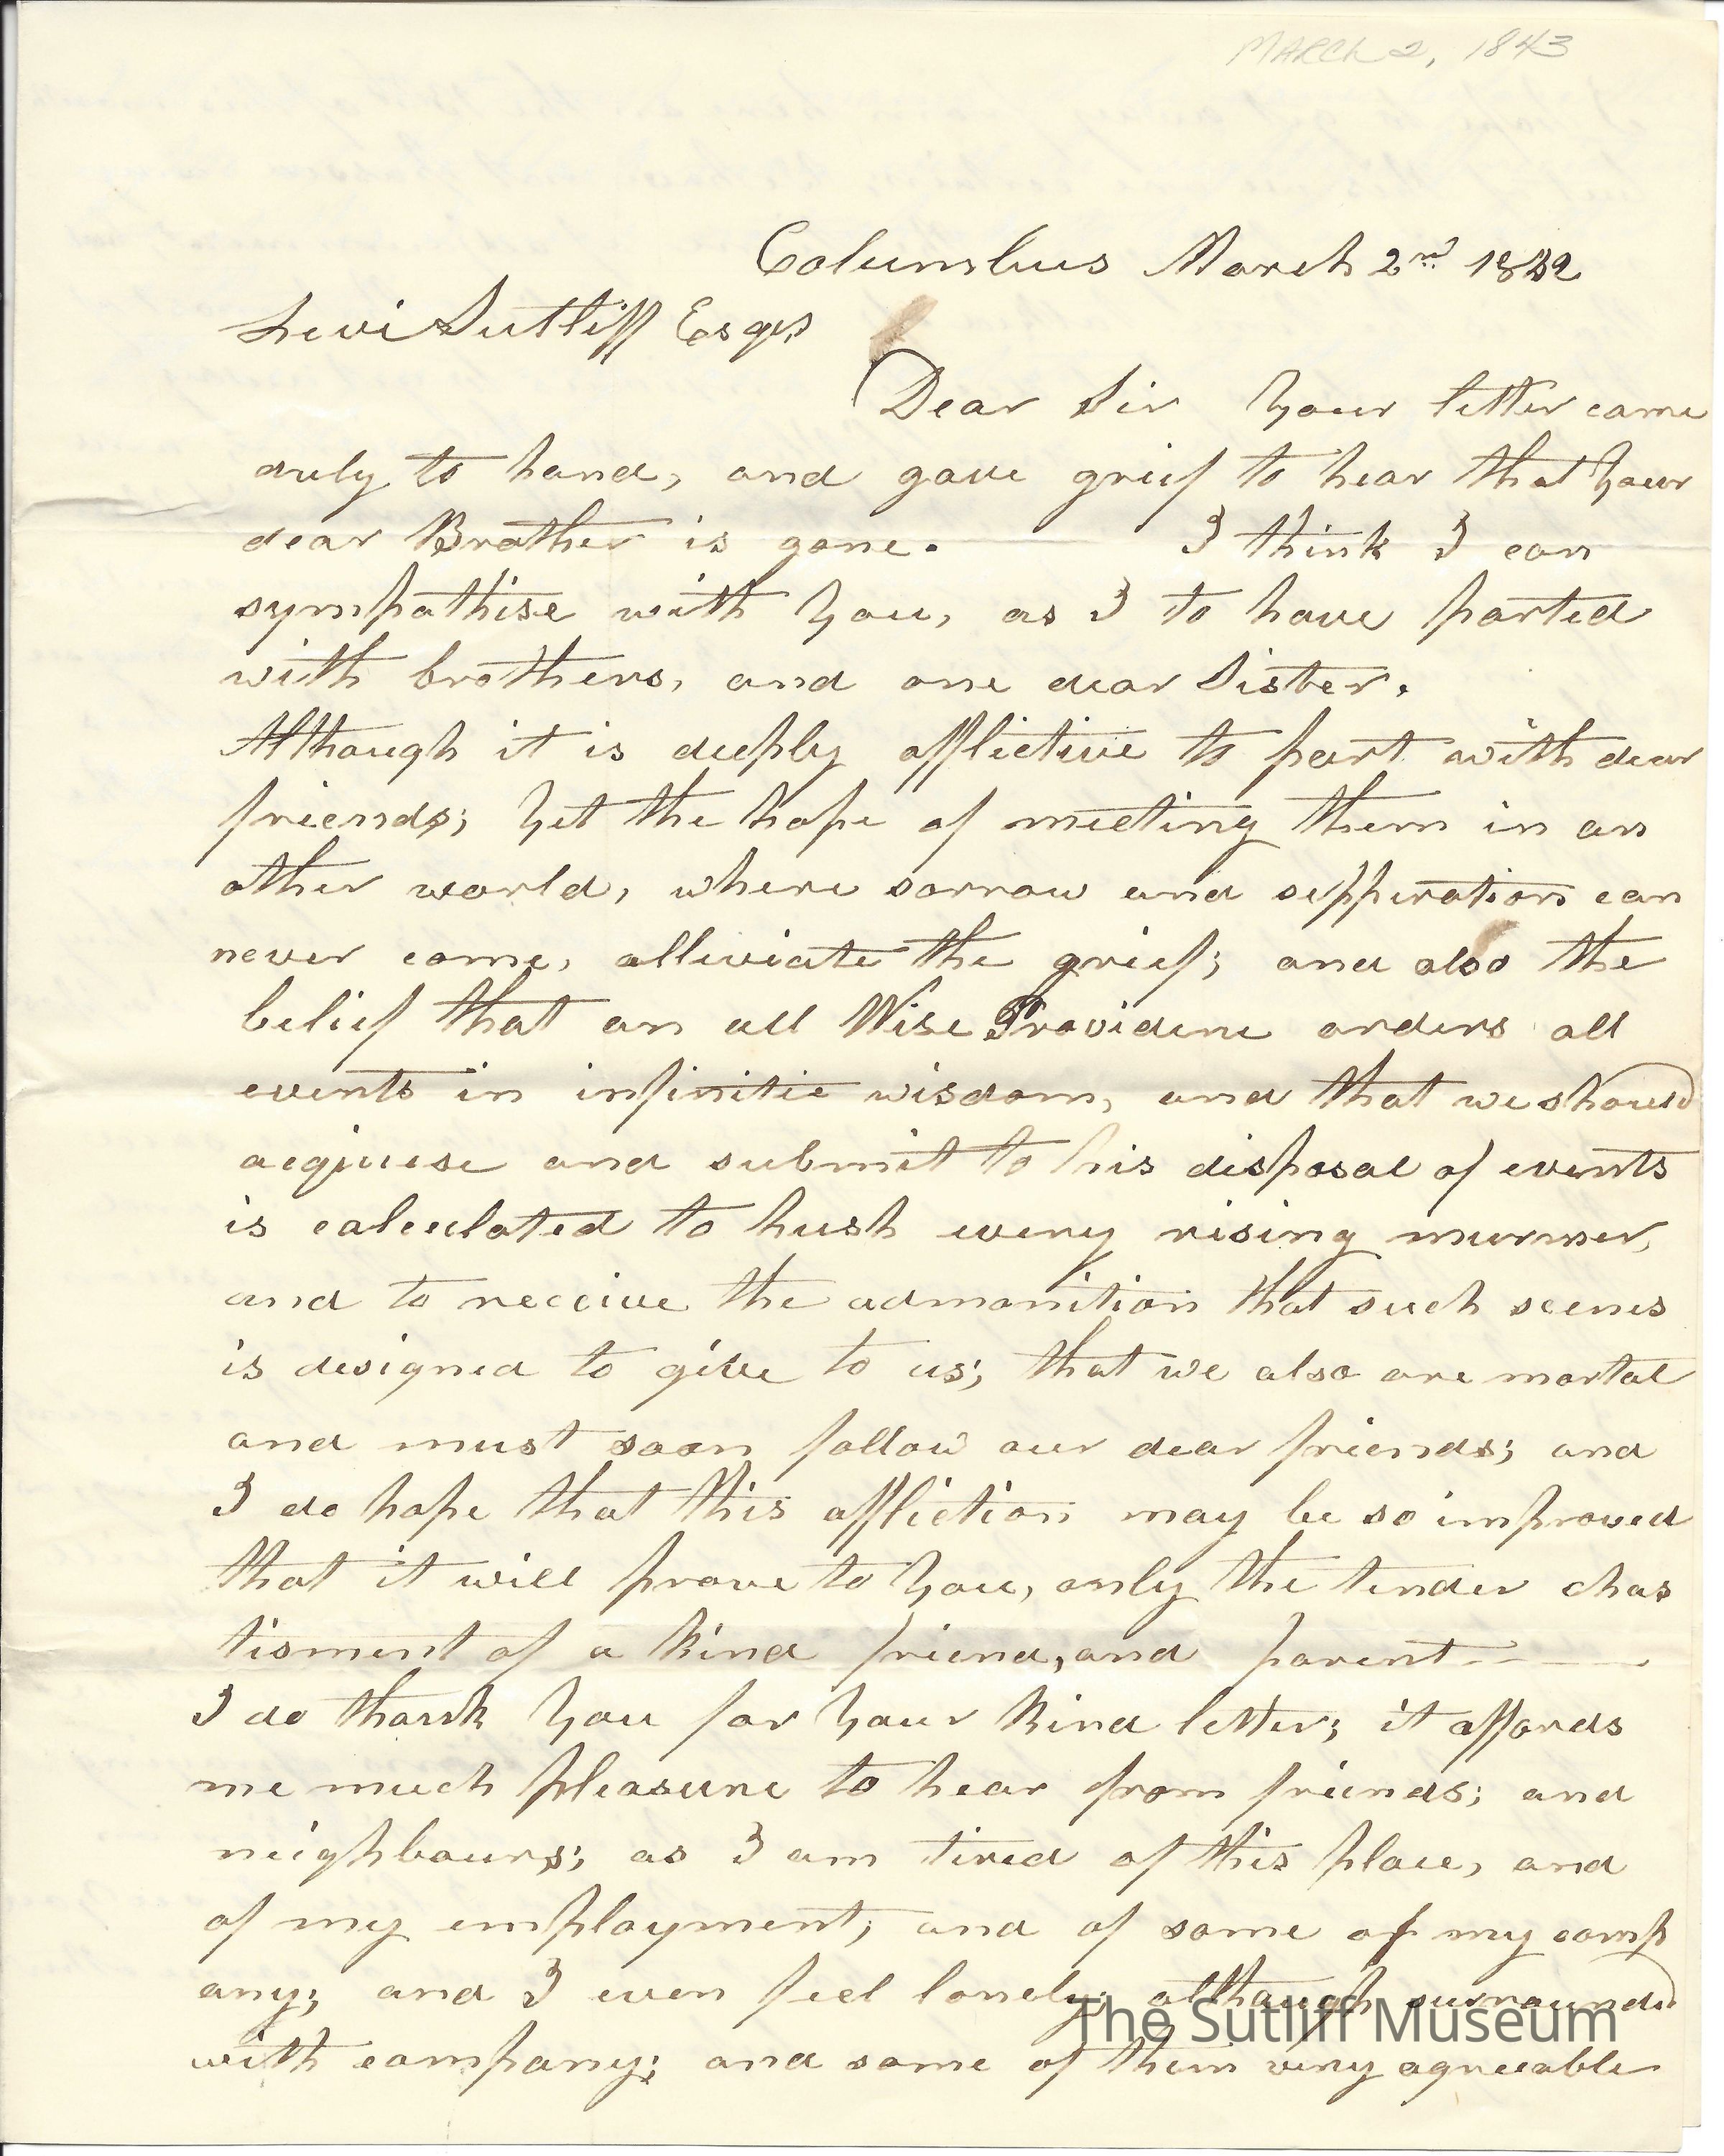 MARCH 2, 1843
Columbus March 2nd 18
Levi Sutliff Esqr
Dear Sir Your letter came
duly to hand, and gave grief to hear that Your
dear Brother is gone. I think I can
sympathise with You, as I to have parted
with brothers, and one dear Sister.
Although it is deeply afflictive to part with dear
friends; Yet the hope of meeting them in an
other world, where sorrow and sepperation can
never come, alleviate the grief; and also the
belief that an all Wise Providence orders all
events in infinitie wisdom, and that we should
acquiese and submit to his disposal of events
is calculated to hush every rising murmer,
and to receive the admonition that such scenes
is designed to give to us; that we also are mortal
and must soon follow our dear friends; and
I do hope that this affliction may be so improved
that it will prove to You, only the tender chas
tisment of a kind friend, and parent
I do thank You for Your kind letter; it affords
me much pleasure to hear from friends; and
neighbours; as I am tired of this place, and
of my employment; and of some of my comp
any; and I even feel lonely; although surrounded
with company; and some of them very agreeable
The Sutliff Museum